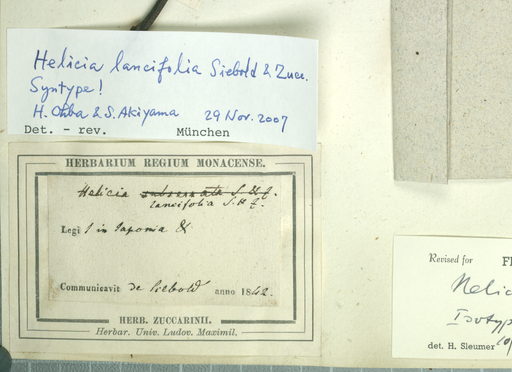 Helicia lancifolia Siebold & Zucc.
Syntype!
H. Ohba & S. Akiyama 29 Nov. 2007
Det. - rev. München
HERBARIUM REGIUM MONACENSE.
Helicia subserrata S. & Z.
lancifolia S. & Z.
Legi in Japonia
Communicavit de Siebold anno 1842.
HERB. ZUCCARINII.
Herbar. Univ. Ludov. Maximil.
Revised for
Helic
Isotyp
det. H. Sleumer